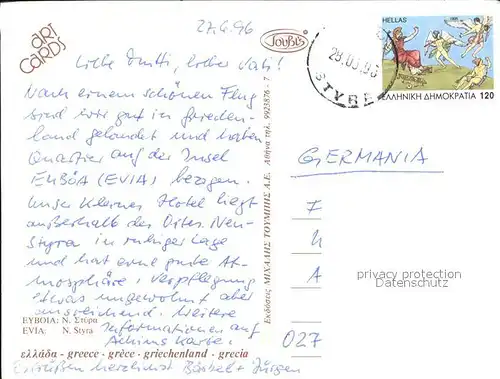 27.6.96
ART CARDS
Liebe Mutti, lieber Vati!
Nach einem schönen Flug
sind wir gut in Griechen-
land gelandet und haben
Quartier auf der Insel
EUBÖA (EVIA) bezogen.
Unser kleines Hotel liegt
außerhalb des Ortes Neu-
Styra in ruhiger Lage
und hat eine gute At-
mosphäre, Verpflegung
etwas ungewohnt aber
ausreichend. Weitere
Informationen auf
Achims Karte.
ΕΥΒΟΙΑ: Ν. Στύρα
EVIA: N. Styra
ελλάδα - greece - grèce - griechenland - grecia
herzlichst Bärbel + Jürgen
Εκδόσεις ΜΙΧΑΛΗΣ ΤΟΥΜΠΗΣ Α.Ε. Αθήνα τηλ. 9923876 - 7
HELLAS
ΕΛΛΗΝΙΚΗ ΔΗΜΟΚΡΑΤΙΑ 120
STYRE
GERMANIA
privacy protection
Datenschutz
027